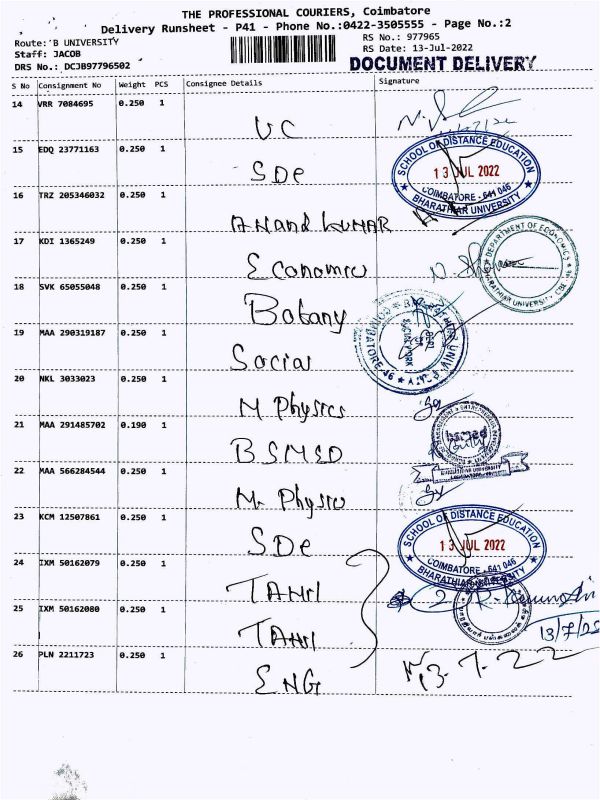 THE PROFESSIONAL COURIERS, Coimbatore
Delivery Runsheet - P41 - Phone No.:0422-3505555 - Page No.:2
Route: B UNIVERSITY
RS No.: 977965
Staff: JACOB
RS Date: 13-Jul-2022
DRS No.: DCJB97796502
DOCUMENT DELIVERY
S No Consignment No Weight PCS Consignee Details Signature
14 VRR 7084695 0.250 1
VC
15 EDQ 23771163 0.250 1
SDE
SCHOOL OF DISTANCE EDUCATION
13 JUL 2022
COIMBATORE - 641 046
BHARATHIAR UNIVERSITY
16 TRZ 205346032 0.250 1
Anand KUMAR
17 KDI 1365249 0.250 1
Economics
DEPARTMENT OF ECONOMICS
BHARATHIAR UNIVERSITY CBE 46
18 SVK 65055048 0.250 1
Botany
19 MAA 290319187 0.250 1
Social
COIMBATORE 46
20 NKL 3033023 0.250 1
M Physics
21 MAA 291485702 0.190 1
BSMED
22 MAA 566284544 0.250 1
M. Physics
23 KCM 12507861 0.250 1
SDE
SCHOOL OF DISTANCE EDUCATION
13 JUL 2022
COIMBATORE - 641 046
BHARATHIAR UNIVERSITY
24 IXM 50162079 0.250 1
TAMIL
25 IXM 50162080 0.250 1
TAMIL
13/7/22
26 PLN 2211723 0.250 1
ENG
13-7-22